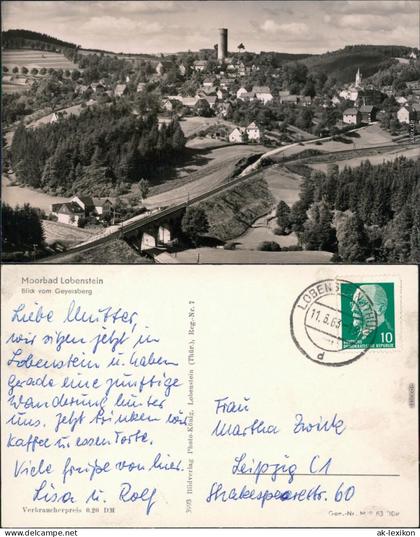 Moorbad Lobenstein
Blick vom Geyersberg
Liebe Mutter,
wir sitzen jetzt in
Lobenstein u. haben
gerade eine zünftige
Wanderung hinter
uns. Jetzt trinken wir
Kaffee u. essen Torte.
Viele Grüße von hier.
Lisa u. Rolf
Verbraucherpreis 0.20 DM
3093 Bildverlag Photo-König, Lobenstein (Thür.), Reg.-Nr. 7
LOBENSTEIN
11.6.63
d
DEMOKRATISCHE REPUBLIK
10
Frau
Martha Zwink
Leipzig C1
Shakespearestr. 60